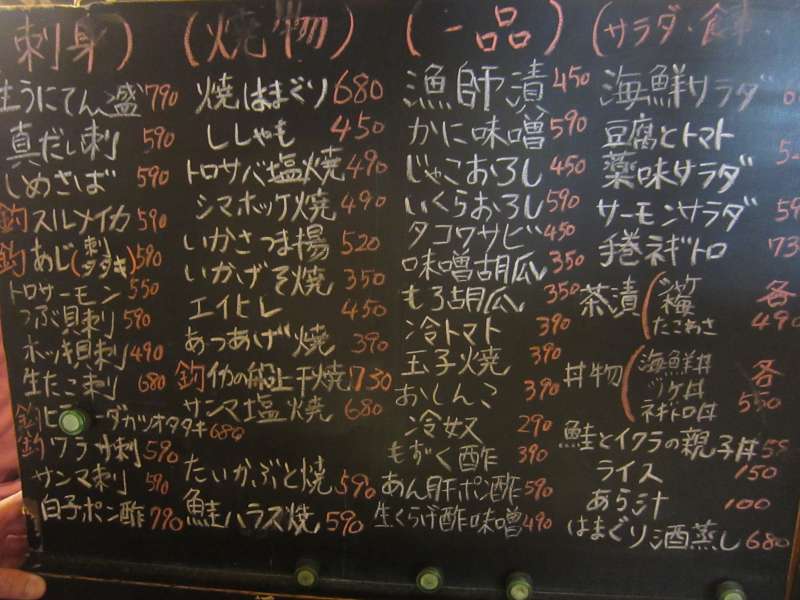 刺身)
生うにてん盛790
真だい刺 590
しめさば 590
釣スルメイカ590
釣あじ(刺 タタキ)590
トロサーモン 550
つぶ貝刺 590
ホッキ貝刺490
生たこ刺 680
釣ヒ ーダガツオタタキ680
釣ワラサ刺590
サンマ刺 590
白子ポン酢 790
(焼物)
焼はまぐり680
ししゃも 450
トロサバ塩焼490
シマホッケ焼 490
いかさつま揚 520
いかげそ焼 350
エイヒレ 450
あつあげ焼 390
釣イカの船上干焼730
サンマ塩焼 680
たいかぶと焼590
鮭ハラス焼 590
(一品)
漁師漬450
かに味噌590
じゃこおろし450
いくらおろし590
タコワサビ450
味噌胡瓜350
もろ胡瓜 350
冷トマト 390
玉子焼 390
おしんこ 390
冷奴 290
もずく酢 390
あん肝ポン酢590
生くらげ酢味噌490
(サラダ・食事
海鮮サラダ
豆腐とトマト
薬味サラダ
サーモンサラダ
手巻ネギトロ 73
茶漬(
梅
たこわさ
各
490
丼物(
海鮮丼
ヅケ丼
ネギトロ丼
各
550
鮭とイクラの親子丼
ライス 150
あら汁 100
はまぐり酒蒸し680